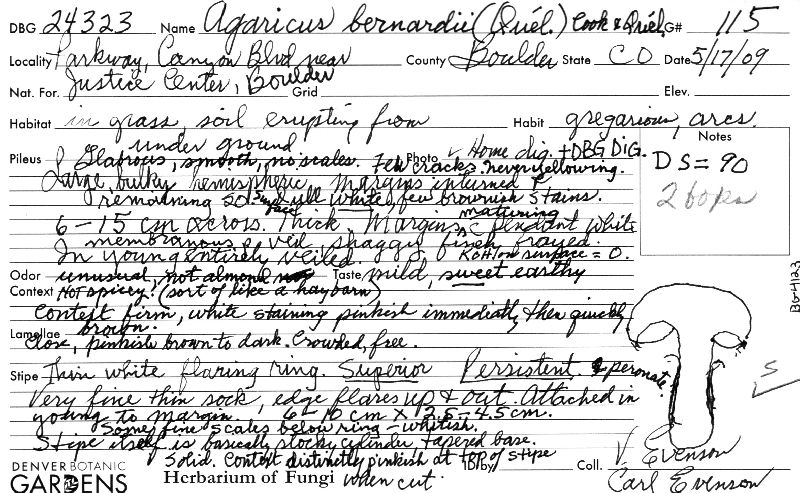 DBG 24323 Name Agaricus bernardii (Quél.) Cook & Quél. G# 115
Locality Parkway, Canyon Blvd near County Boulder State CO Date 5/17/09
Nat. For. Justice Center, Boulder Grid Elev.
Habitat in grass, soil erupting from Habit gregarious, arcs.
under ground
Notes
DS = 90
2 boxes
Photo ✓ Home dig. + DBG DIG.
Pileus Glabrous, smooth, no scales. Few cracks. Never yellowing.
Large, bulky hemispheric, margins inturned &
remaining so. Surface dull white, few brownish stains.
6-15 cm across. Thick. Margins maturing c̄ pendant white
membranous veil shaggy finely frayed.
In young entirely veiled. KOH on surface = 0.
Odor unusual, not almond Taste mild, sweet earthy
Context Not spicey! (sort of like a hay barn)
Context firm, white staining pinkish immediately, then quickly
brown.
Lamellae Close, pinkish brown to dark. Crowded, free.
Stipe Thin white flaring ring. Superior Persistent. & peronate.
Very fine thin sock, edge flares up & out. Attached in
young to margin. 6-10 cm x 2.5-4.5 cm.
Some fine scales below ring - whitish.
Stipe itself is basically stocky cylinder, tapered base.
Solid. Context distinctly pinkish at top of stipe
when cut.
ID by Coll. V. Evenson
Carl Evenson
DENVER BOTANIC
GARDENS
Herbarium of Fungi
S
BG-4123